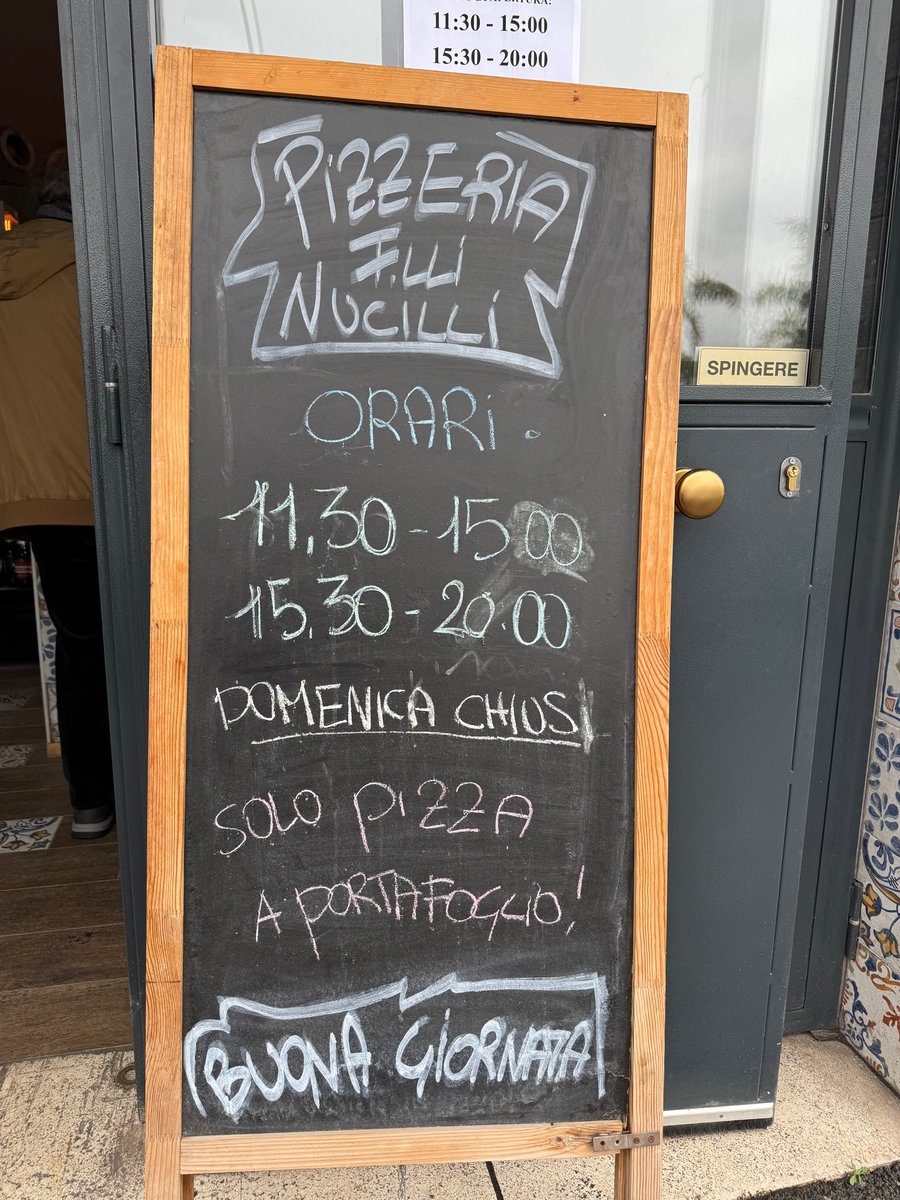 11:30 - 15:00
15:30 - 20:00
PiZZERIA
F.lli
NUCILLi
ORARi.
11,30 - 15,00
15,30 - 20.00
DOMENICA CHIUSI
SOLO PiZZA
A PORTAFOGLIO!
BUONA GIORNATA
SPINGERE